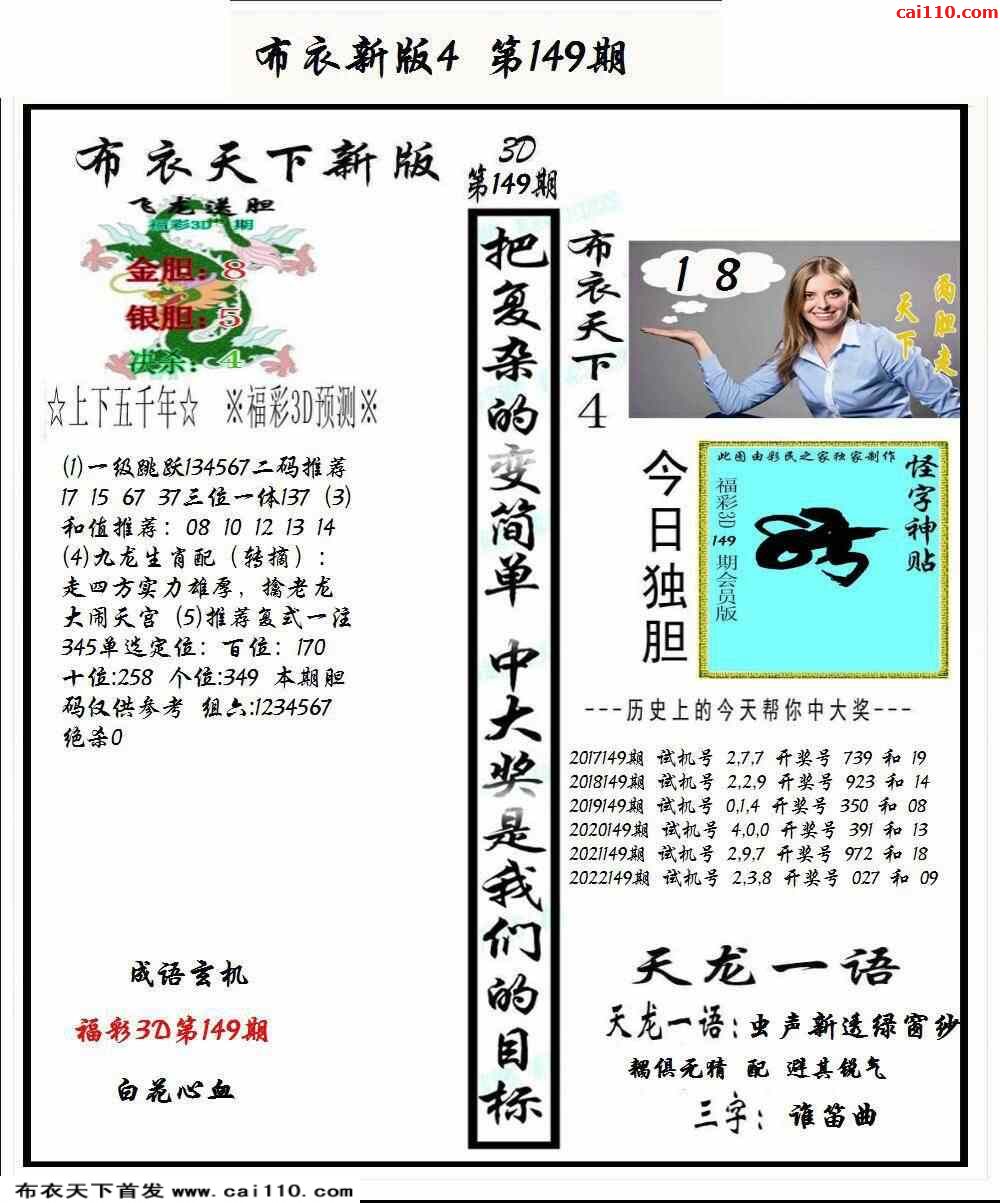 cai110.com
布衣新版4 第149期
布衣天下新版
飞龙送胆
福彩3D 期
金胆：8
银胆：5
决杀：4
☆上下五千年☆ ※福彩3D预测※
(1)一级跳跃134567二码推荐
17 15 67 37三位一体137 (3)
和值推荐：08 10 12 13 14
(4)九龙生肖配（转摘）：
走四方实力雄厚，擒老龙
大闹天宫 (5)推荐复式一注
345单选定位：百位：170
十位:258 个位:349 本期胆
码仅供参考 组六:1234567
绝杀0
成语玄机
福彩3D第149期
白花心血
3D
第149期
把复杂的变简单 中大奖是我们的目标
布衣天下4
1 8
两胆走
天下
今日独胆
此图由彩民之家独家制作
怪字神贴
福彩3D149期会员版
---历史上的今天帮你中大奖---
2017149期 试机号 2,7,7 开奖号 739 和 19
2018149期 试机号 2,2,9 开奖号 923 和 14
2019149期 试机号 0,1,4 开奖号 350 和 08
2020149期 试机号 4,0,0 开奖号 391 和 13
2021149期 试机号 2,9,7 开奖号 972 和 18
2022149期 试机号 2,3,8 开奖号 027 和 09
天龙一语
天龙一语:虫声新透绿窗纱
耦俱无猜 配 避其锐气
三字：谁笛曲
布衣天下首发 www.cai110.com